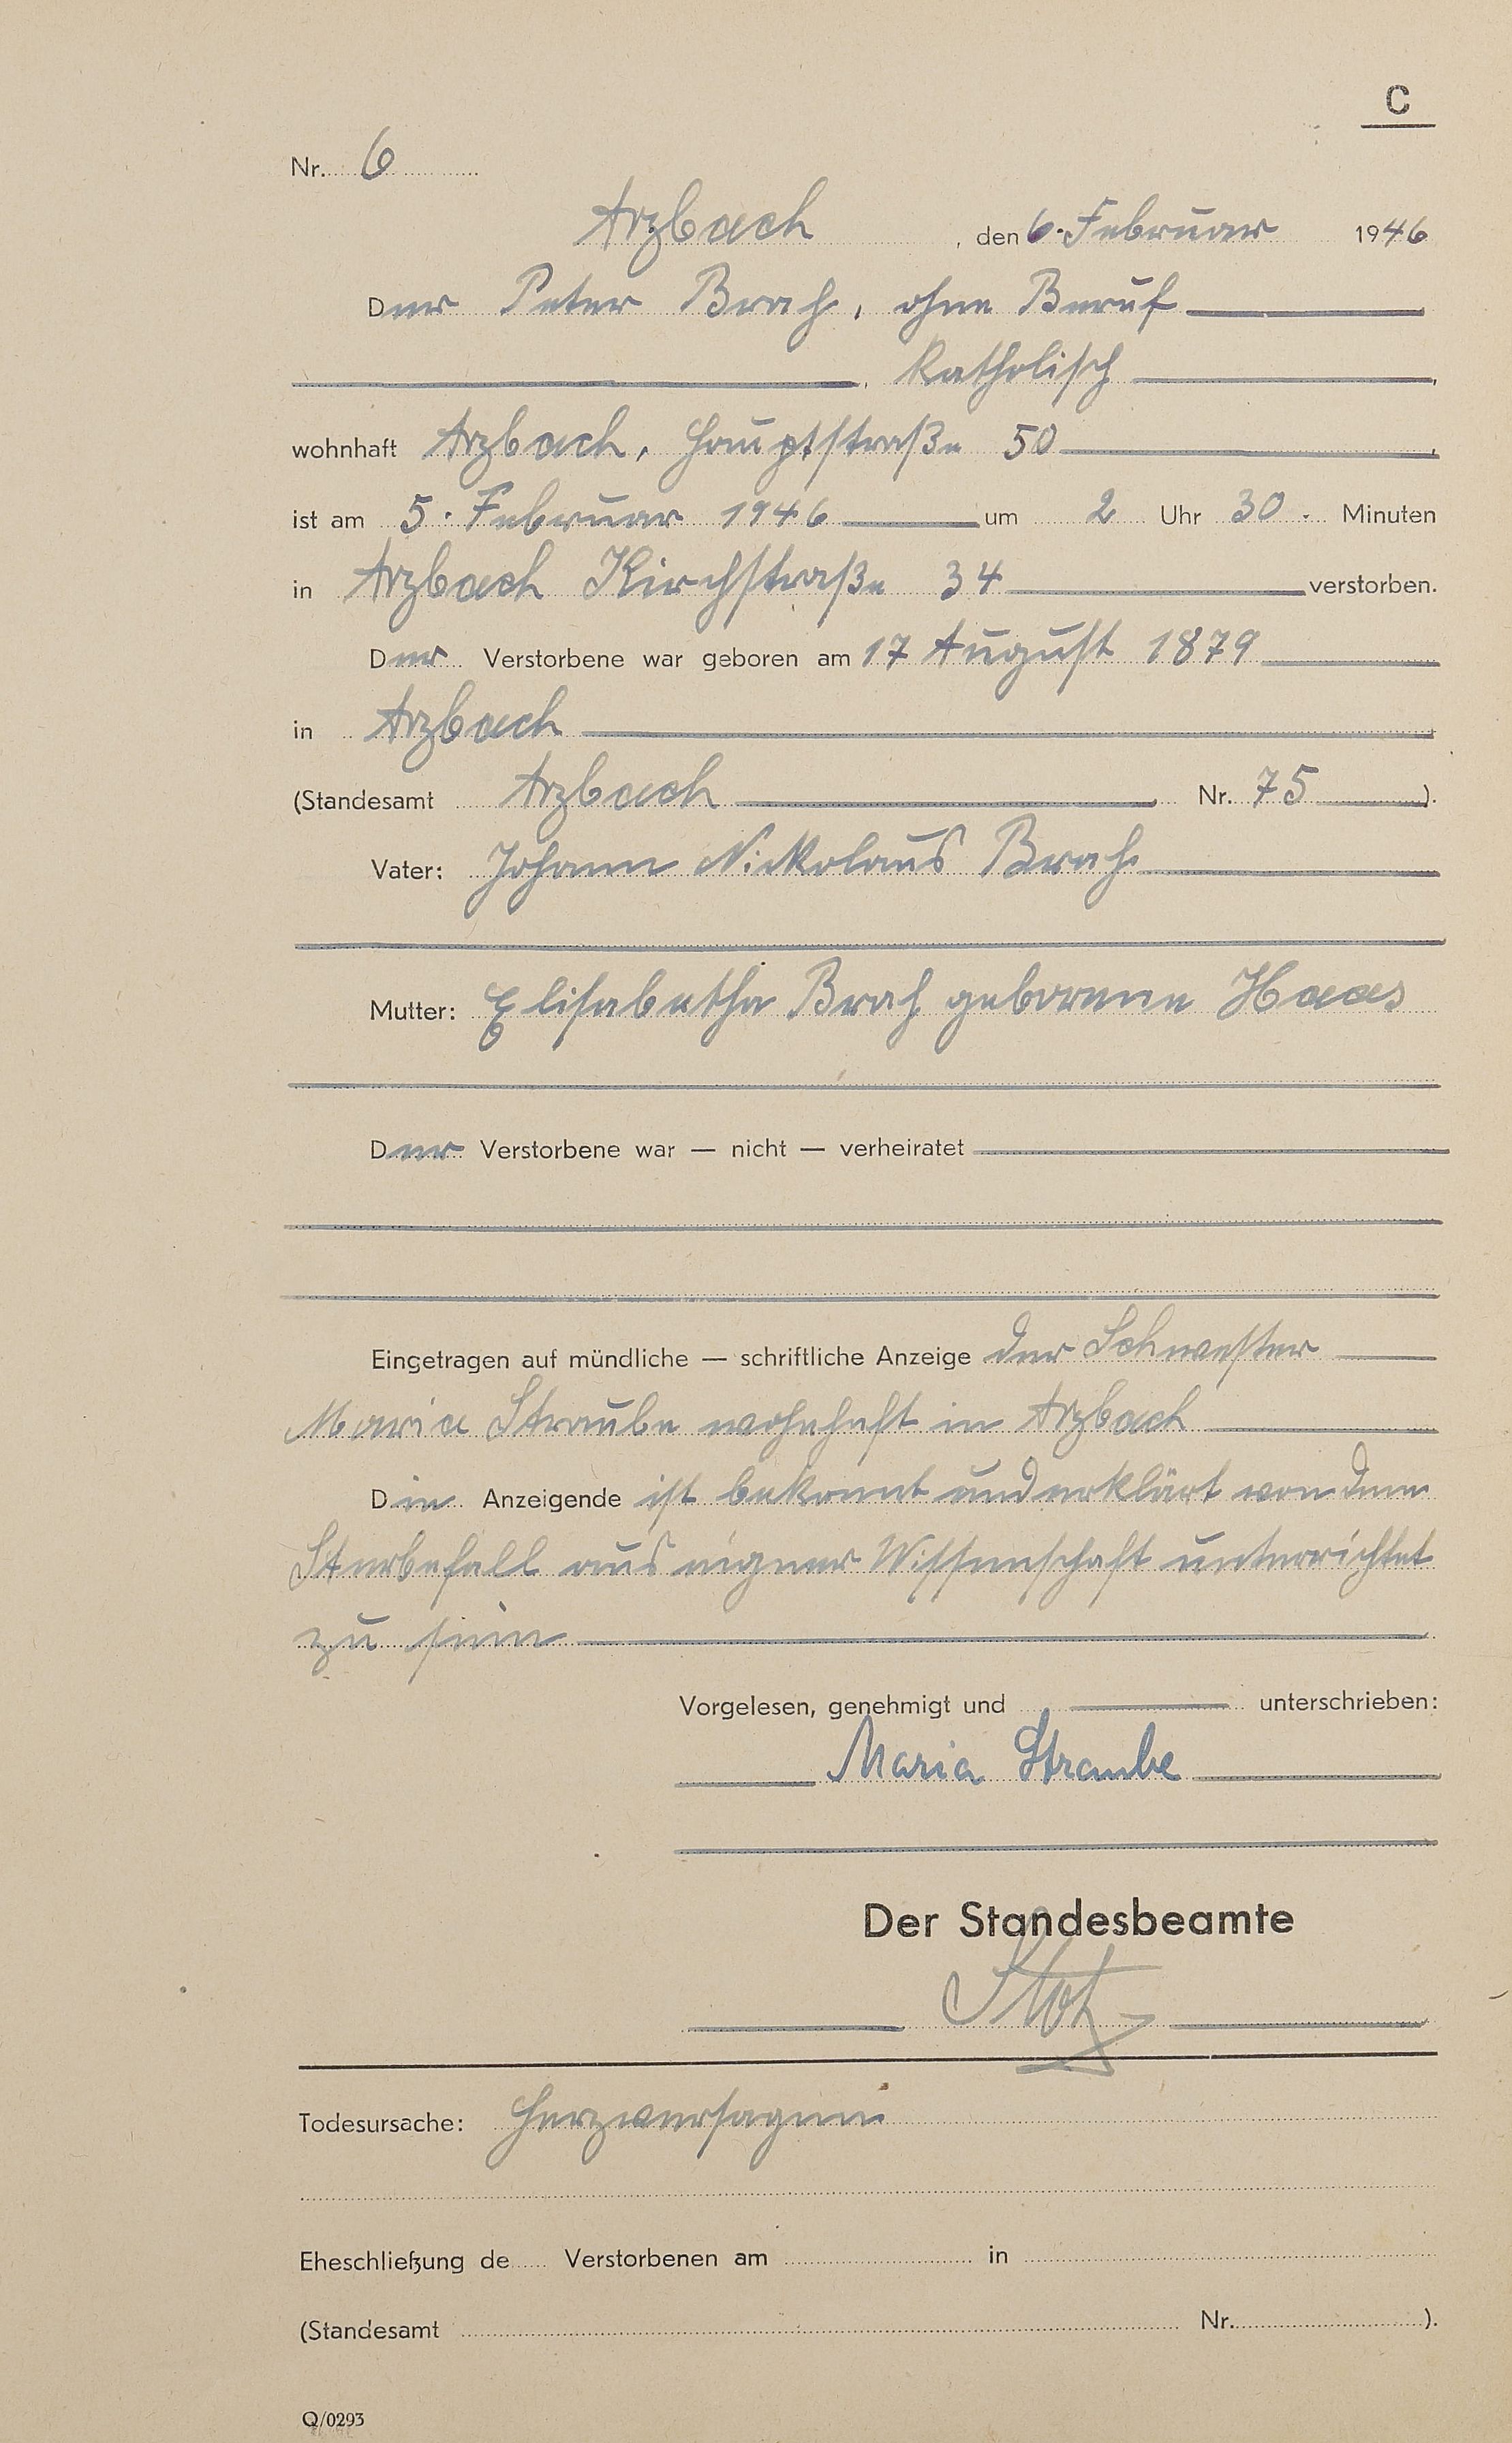 C
Nr. 6
Arzbach, den 6. Februar 1946
Der Peter Brah, ohne Beruf
, Katholisch,
wohnhaft Arzbach, Hauptstraße 50,
ist am 5. Februar 1946 um 2 Uhr 30. Minuten
in Arzbach Kirchstraße 34 verstorben.
Der Verstorbene war geboren am 17 August 1879
in Arzbach
(Standesamt Arzbach Nr. 75).
Vater: Johann Nickolaus Brah
Mutter: Elisabetha Brah geborene Haas
Der Verstorbene war — nicht — verheiratet
Eingetragen auf mündliche — schriftliche Anzeige der Schwester
Maria Straube wohnhaft in Arzbach
Die Anzeigende ist bekannt und erklärt von dem
Sterbefall aus eigner Wissenschaft unterrichtet
zu sein
Vorgelesen, genehmigt und unterschrieben:
Maria Straube
Der Standesbeamte
Todesursache: Herzversagen
Eheschließung de Verstorbenen am in
(Standesamt Nr. ).
Q/0293